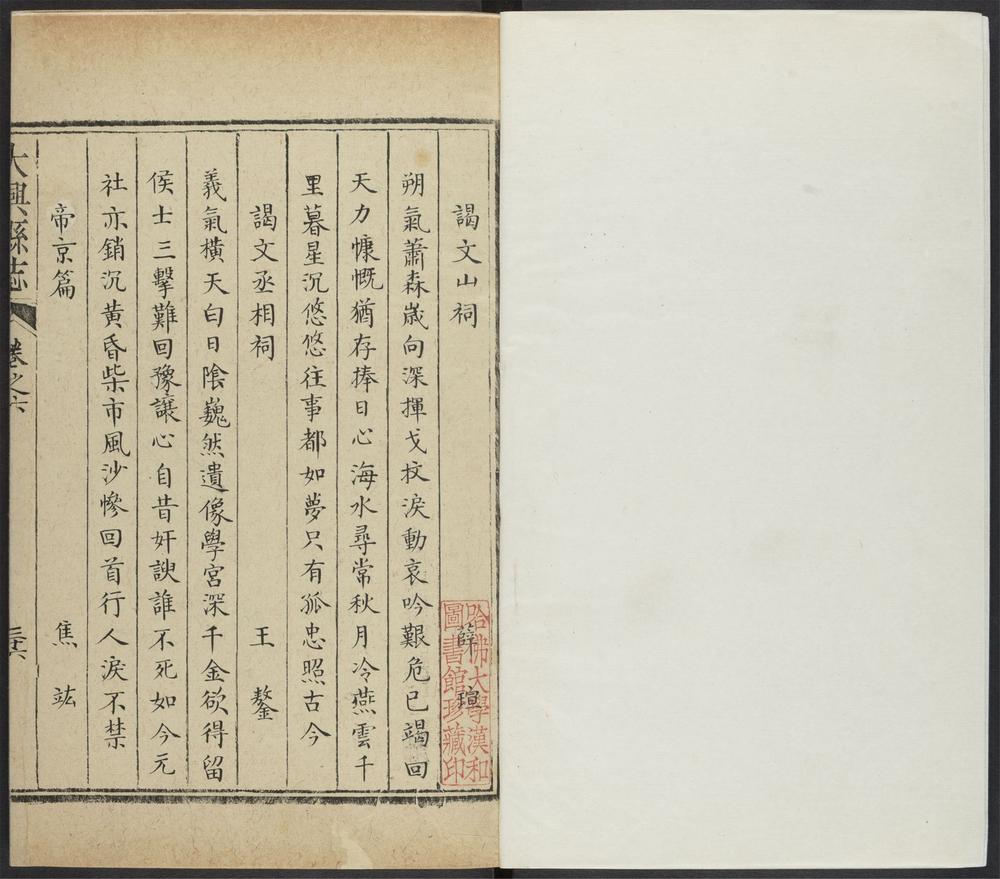 謁文山祠 薛瑄
朔氣蕭森歲向深揮戈抆淚動哀吟艱危已竭回
天力慷慨猶存捧日心海水尋常秋月冷燕雲千
里暮星沉悠悠往事都如夢只有孤忠照古今
謁文丞相祠 王鏊
義氣橫天白日陰巍然遺像學宮深千金欲得留
侯士三擊難回豫讓心自昔奸諛誰不死如今元
社亦銷沉黃昏柴市風沙慘回首行人淚不禁
帝京篇 焦竑
大興縣志 卷之六 三六
哈佛大學漢和
圖書館珍藏印